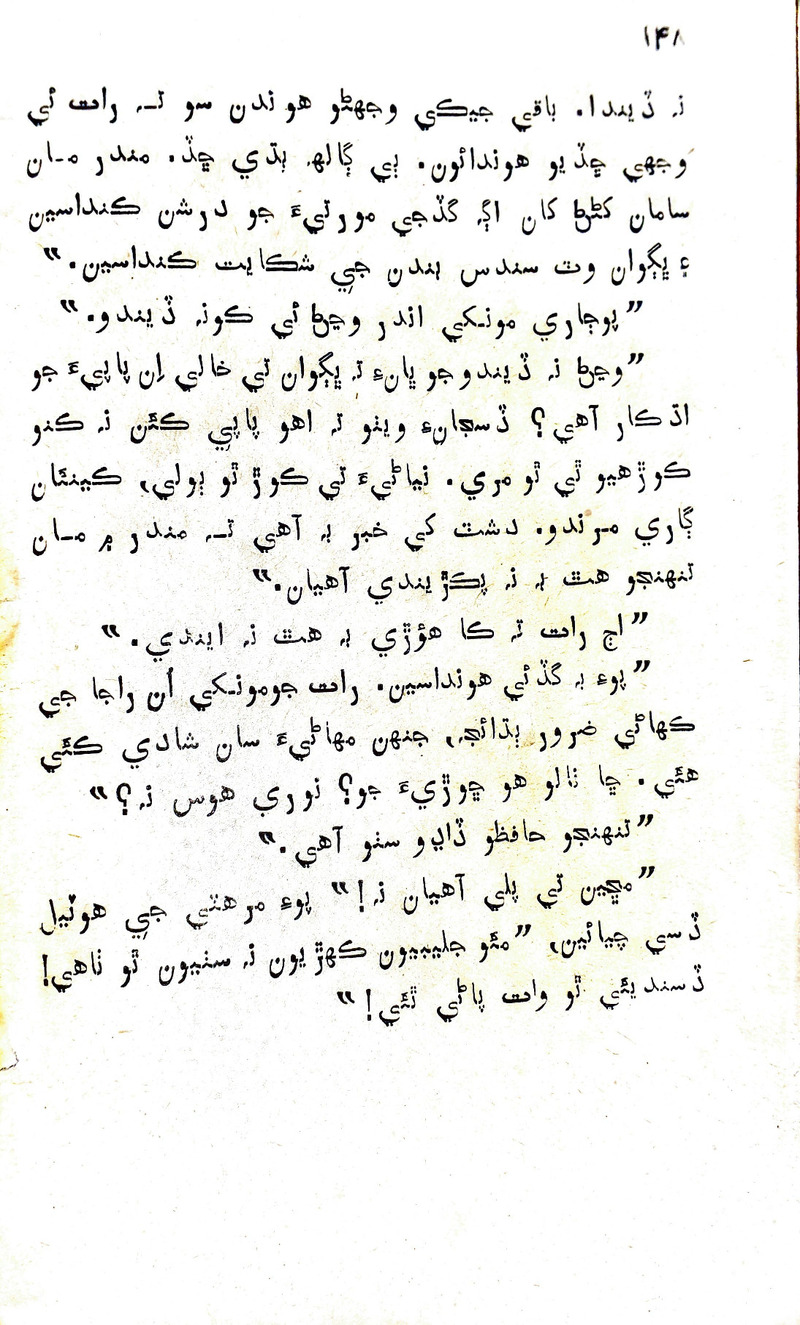 ۱۴۸
نہ ڏيندا. باقي جيڪي وجھڻو هوندن سو تہ رات ئي
وجھي ڇڏيو هوندائون. ٻي ڳالھہ ٻڌي ڇڏ. مندر مان
سامان کڻڻ کان اڳہ گڏجي مورتيءَ جو درشن ڪنداسين
۽ ڀڳوان وٽ سندس ٻندن جي شڪايت ڪنداسين.“
”پوڄاري مونکي اندر وڃڻ ئي ڪونہ ڏيندو.“
”وڃڻ نہ ڏيندو جو ڀانءِ تہ ڀڳوان تي خالي اِن پاپيءَ جو
اڌڪار آهي؟ ڏسجانءِ ويٺو تہ اهو پاپي ڪئن نہ ڪنو
ڪوڙهيو ٿي ٿو مري. نياڻيءَ تي ڪوڙ ٿو ٻولي، ڪينئان
ڳاري مرندو. دشٽ کي خبر بہ آهي تہ مندر ۾ مان
تنهنجو هٿ بہ نہ پڪڙيندي آهيان.“
”اڄ رات تہ ڪا هوڙي بہ هٿ نہ ايندي.“
”پوءِ بہ گڏئي هونداسين. رات جو مونکي اُن راجا جي
ڪهاڻي ضرور ٻڌائجہ، جنهن مهاڻيءَ سان شادي ڪئي
هئي. ڇا نالو هو ڇوڙيءَ جو؟ نوري هوس نہ؟“
”تنهنجو حافظو ڏاڍو سٺو آهي.“
”مڇين تي پلي آهيان نہ!“ پوءِ مرهٽي جي هوٽيل
ڏسي چيائين، ”مئو جليبيون ڪهڙيون نہ سٺيون ٿو ٺاهي!
ڏسنديئي ٿو وات پاڻي ٿئي!“